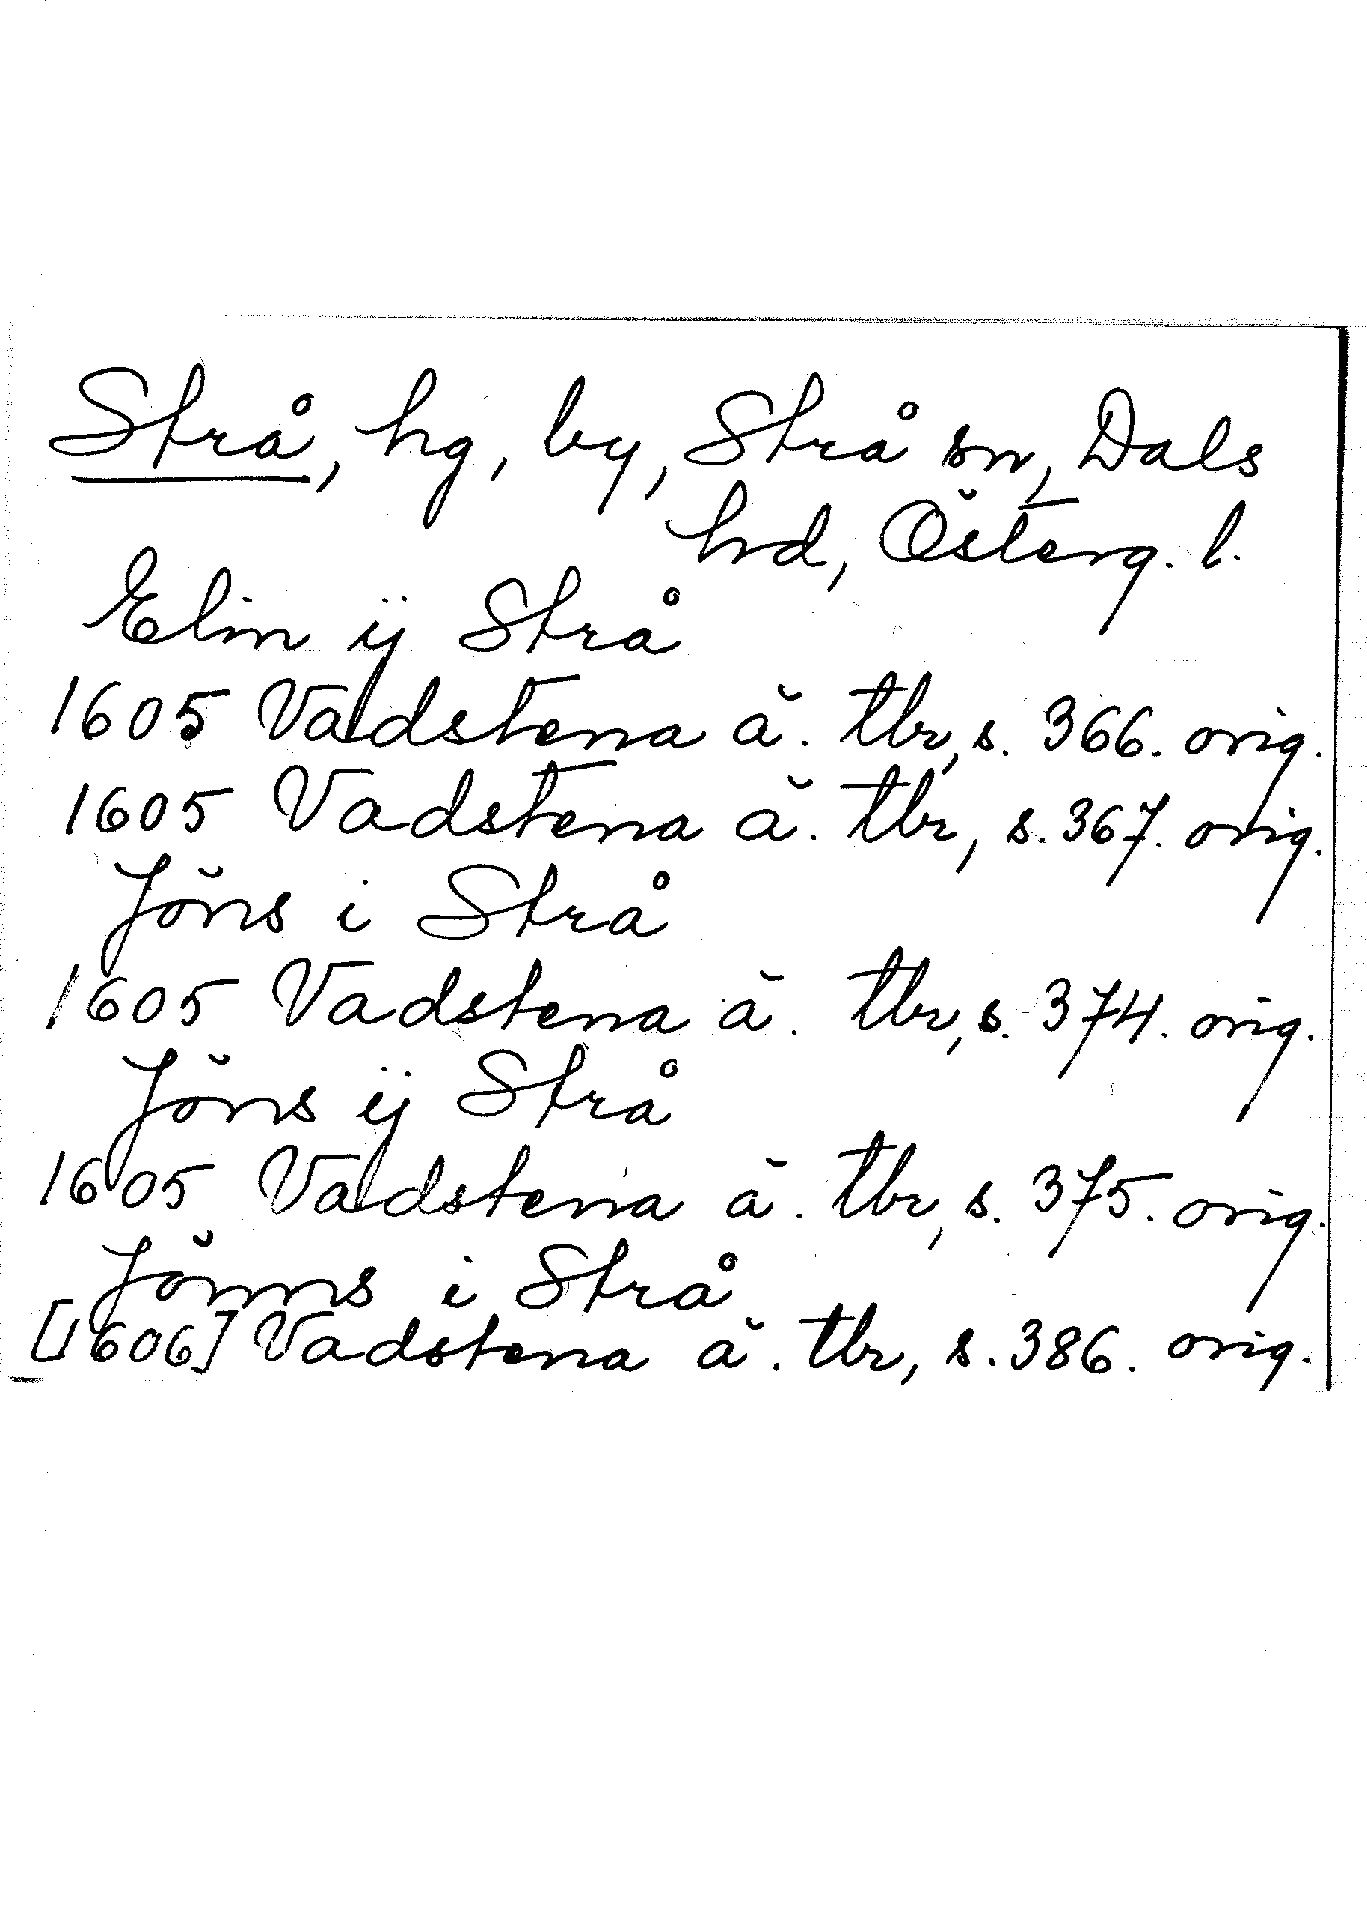 Strå, hg, by, Strå sn, Dals
hd, Österg. l.
Elin ÿ Strå
1605 Vadstena ä. tbr, s. 366. orig.
1605 Vadstena ä. tbr, s. 367. orig.
Jöns i Strå
1605 Vadstena ä. tbr, s. 374. orig.
Jöns ÿ Strå
1605 Vadstena ä. tbr, s. 375. orig.
Jönns i Strå
[1606] Vadstena ä. tbr, s. 386. orig.